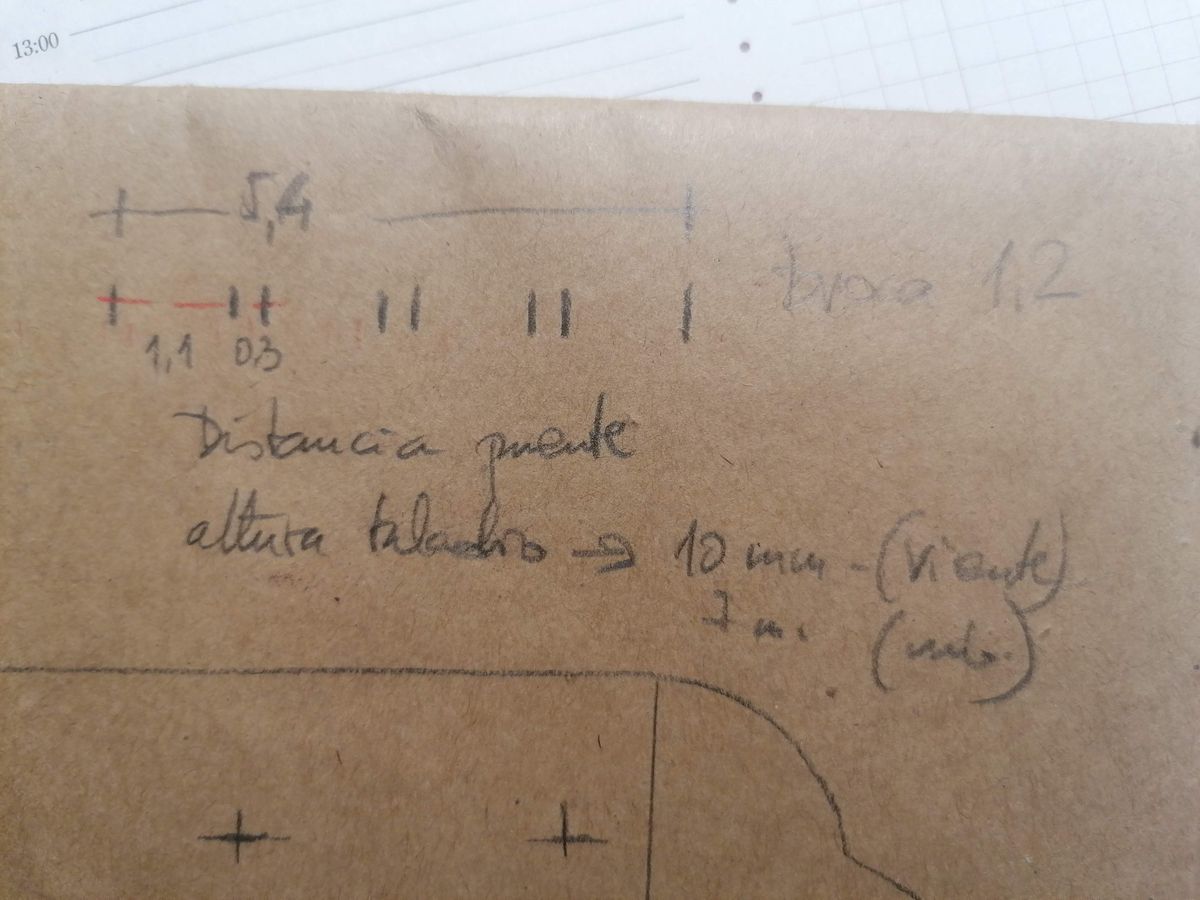 13:00
5,4
broca 1,2
1,1 0,3
Distancia puente
altura taladro → 10 mm - (viente)
7 m.